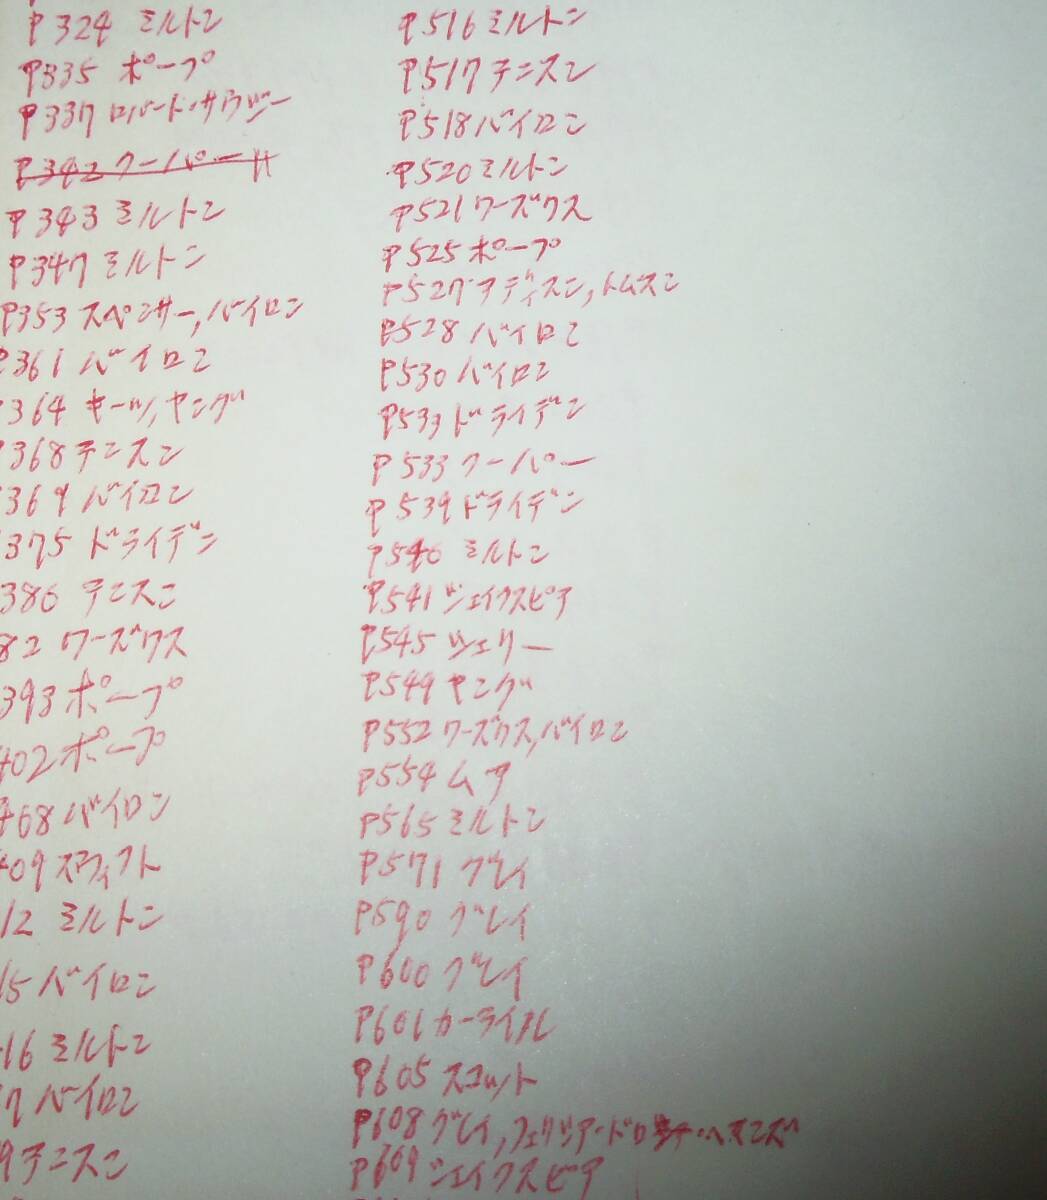 P324 ミルトン
P335 ポープ
P337 ロバート・サウジー
P342 クーパー
P343 ミルトン
P347 ミルトン
P353 スペンサー, バイロン
P361 バイロン
364 キーツ, ヤング
368 テニスン
369 バイロン
375 ドライデン
386 テニスン
82 ワーズワス
393 ポープ
402 ポープ
468 バイロン
409 スウィフト
12 ミルトン
15 バイロン
16 ミルトン
7 バイロン
9 テニスン
P516 ミルトン
P517 テニスン
P518 バイロン
P520 ミルトン
P521 ワーズワス
P525 ポープ
P527 アディスン, トムスン
P528 バイロン
P530 バイロン
P533 ドライデン
P533 クーパー
P539 ドライデン
P540 ミルトン
P541 シェイクスピア
P545 シェリー
P549 ヤング
P552 ワーズワス, バイロン
P554 ムア
P565 ミルトン
P571 グレイ
P590 グレイ
P600 グレイ
P601 カーライル
P605 スコット
P608 グレイ, フェリシア・ドロ・ヘマンズ
P609 シェイクスピア